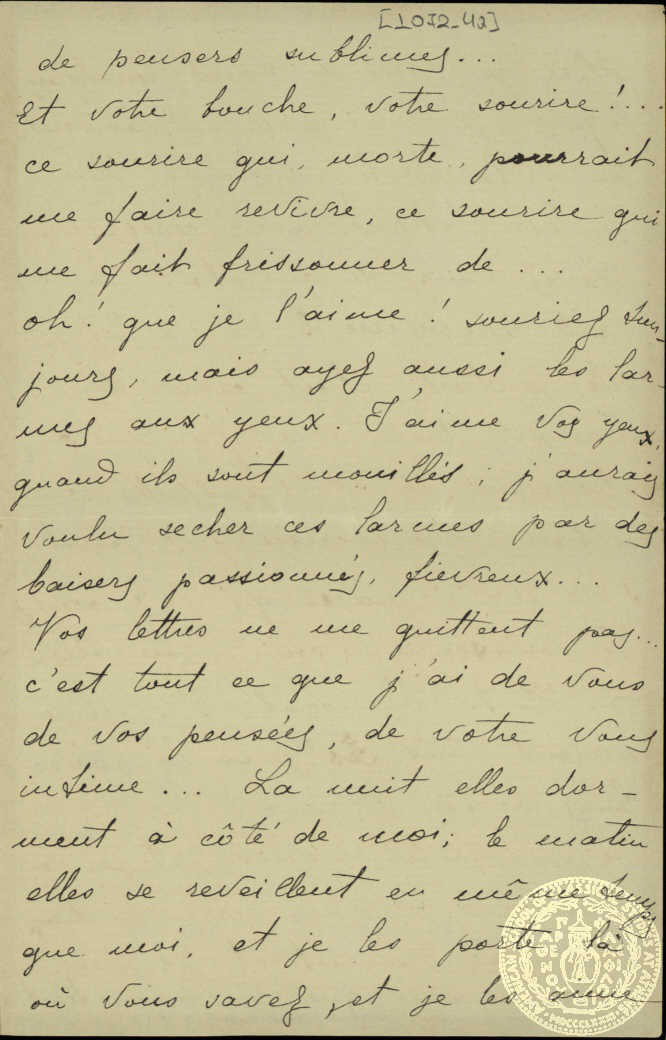 [1072-42]
de pensers sublimes...
Et votre bouche, votre sourire!...
ce sourire qui, morte, pourrait
me faire revivre, ce sourire qui
me fait frissonner de ...
oh! que je l'aime! souriez tou-
jours, mais ayez aussi les lar-
mes aux yeux. J'aime vos yeux,
quand ils sont mouillés; j'aurais
voulu secher ces larmes par des
baisers passionnés, fievreux...
Vos lettres ne me quittent pas...
c'est tout ce que j'ai de vous
de vos pensées, de votre vous
intime... La nuit elles dor-
ment à côté de moi; le matin
elles se reveillent en même temps
que moi, et je les porte là
où vous savez, et je les aime